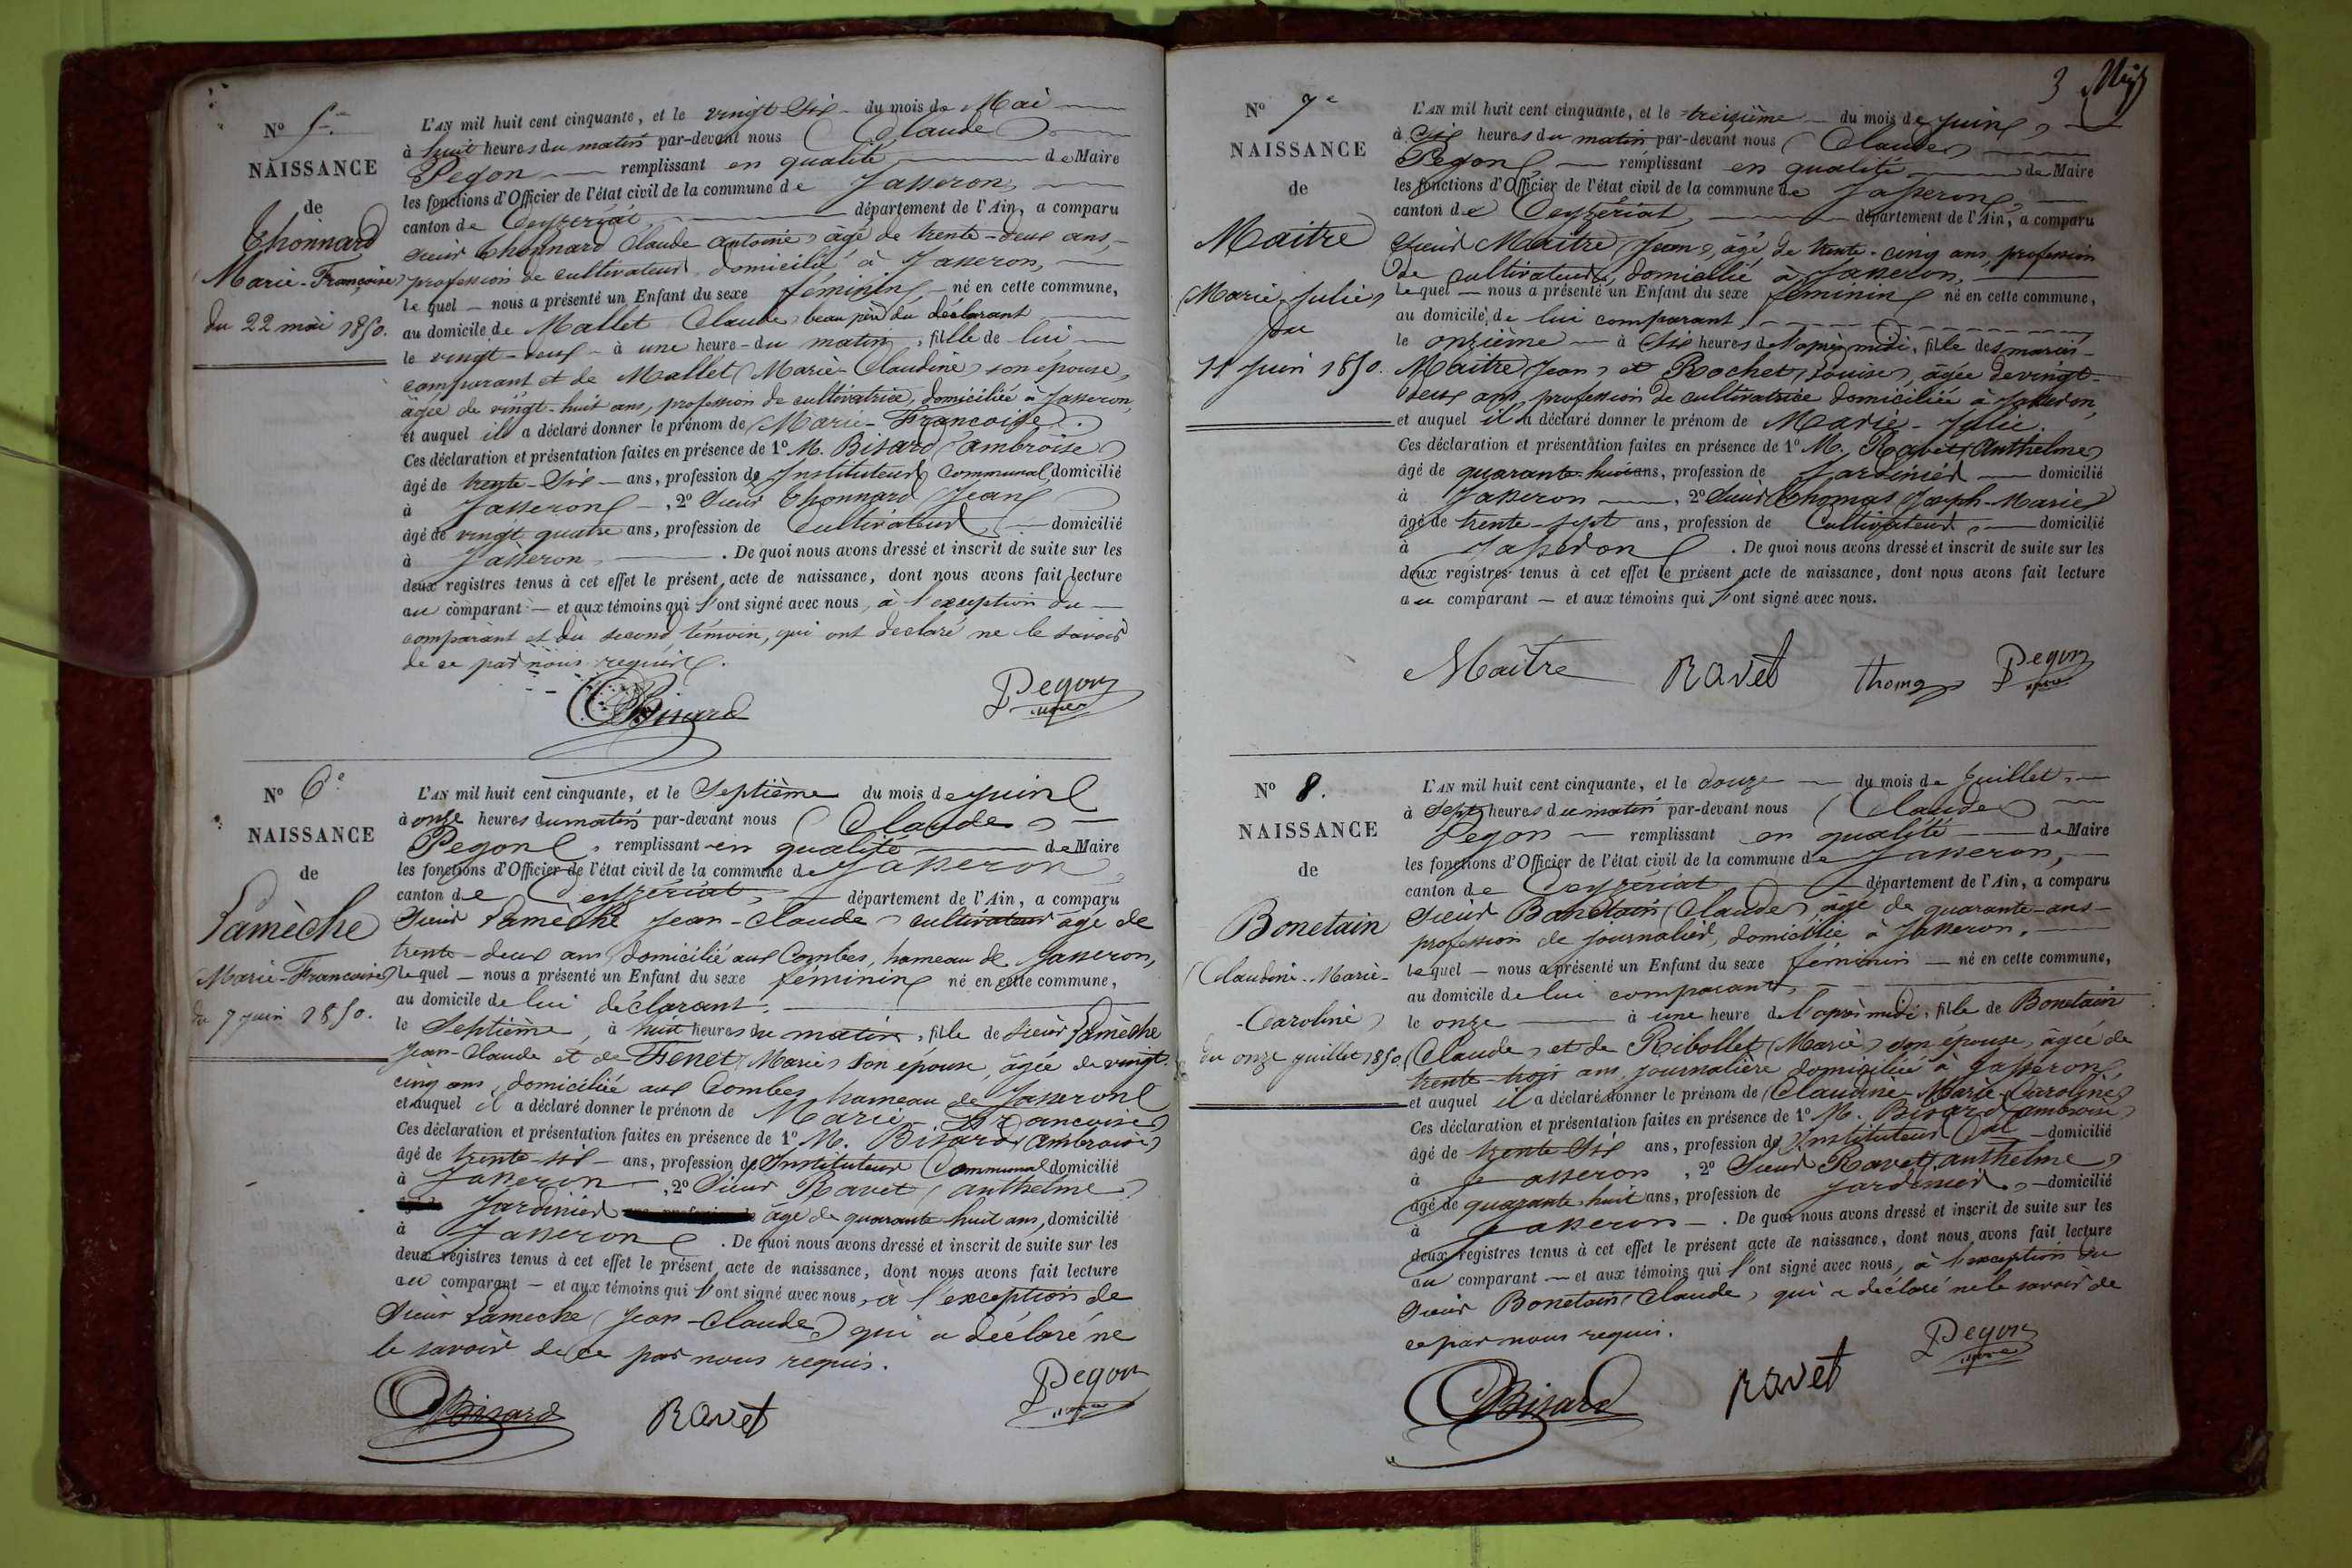 N° 5e.
NAISSANCE
de
Thonnard
(Marie-Françoise)
du 22 mai 1850.
L'AN mil huit cent cinquante, et le vingt-six du mois de Mai
à huit heures du matin par-devant nous (Claude)
Pegon remplissant en qualité de Maire
les fonctions d'Officier de l'état civil de la commune de Jasseron,
canton de Ceyzériat, département de l'Ain, a comparu
sieur Thonnard (Claude antoine) âgé de trente-deux ans,
profession de cultivateur, domicilié à Jasseron,
lequel nous a présenté un Enfant du sexe féminin né en cette commune,
au domicile de Mallet Claude, beau père du déclarant
le vingt-deux à une heure du matin, fille de lui
comparant et de Mallet (Marie-Claudine) son épouse,
âgée de vingt-huit ans, profession de cultivatrice, domiciliée à Jasseron,
et auquel il a déclaré donner le prénom de (Marie-Françoise).
Ces déclaration et présentation faites en présence de 1° M. Bisard (ambroise)
âgé de trente-six ans, profession de Instituteur Communal, domicilié
à Jasseron, 2° Sieur Thonnard (Jean)
âgé de vingt quatre ans, profession de Cultivateur, domicilié
à Jasseron. De quoi nous avons dressé et inscrit de suite sur les
deux registres tenus à cet effet le présent acte de naissance, dont nous avons fait lecture
au comparant et aux témoins qui l'ont signé avec nous, à l'exception du
comparant et du second témoin, qui ont déclaré ne le savoir
de ce par nous requis.
Bisard Pegon
maire
N° 6e
NAISSANCE
de
Lamèche
(Marie-Francoise)
du 7 juin 1850.
L'AN mil huit cent cinquante, et le Septième du mois de juin
à onze heures du matin par-devant nous (Claude)
Pegon, remplissant en qualité de Maire
les fonctions d'Officier de l'état civil de la commune de Jasseron
canton de Ceyzériat, département de l'Ain, a comparu
Sieur Lamèche Jean-Claude, cultivateur âgé de
trente-deux ans, domicilié aux Combes, hameau de Jasseron,
lequel nous a présenté un Enfant du sexe féminin né en cette commune,
au domicile de lui déclarant.
le Septième, à huit heures du matin, fille de sieur Lamèche
Jean-Claude et de Fenet (Marie) son épouse, âgée de vingt-
cinq ans, domiciliée aux Combes, hameau de Jasseron
et auquel il a déclaré donner le prénom de Marie-Francoise)
Ces déclaration et présentation faites en présence de 1° M. Bisard (ambroise)
âgé de trente-six ans, profession de Instituteur Communal domicilié
à Jasseron, 2° Sieur Ravet (anthelme)
Jardinier âgé de quarante huit ans, domicilié
à Jasseron. De quoi nous avons dressé et inscrit de suite sur les
deux registres tenus à cet effet le présent acte de naissance, dont nous avons fait lecture
au comparant et aux témoins qui l'ont signé avec nous, à l'exception de
Sieur Lameche (Jean-Claude) qui a déclaré ne
le savoir de ce par nous requis.
Bisard Ravet Pegon
maire
3
N° 7e
NAISSANCE
de
Maitre
(Marie-Julie)
du
11 Juin 1850.
L'AN mil huit cent cinquante, et le treizième du mois de juin,
à six heures du matin par-devant nous (Claude)
Pegon remplissant en qualité de Maire
les fonctions d'Officier de l'état civil de la commune de Jasseron,
canton de Ceyzériat, département de l'Ain, a comparu
Sieur Maitre (Jean), âgé de trente-cinq ans, profession
de cultivateur, domicilié à Jasseron,
lequel nous a présenté un Enfant du sexe féminin né en cette commune,
au domicile de lui comparant,
le onzième à six heures de l'après midi, fille des mariés
Maitre (Jean) et Rochet (Louise), âgée de vingt-
deux ans, profession de cultivatrice domiciliée à Jasseron,
et auquel il a déclaré donner le prénom de Marie-Julie.
Ces déclaration et présentation faites en présence de 1° M. Ravet (Anthelme)
âgé de quarante-huit ans, profession de Jardinier domicilié
à Jasseron, 2° Sieur Thomas Joseph-Marie)
âgé de trente-sept ans, profession de Cultivateur, domicilié
à Jasseron. De quoi nous avons dressé et inscrit de suite sur les
deux registres tenus à cet effet le présent acte de naissance, dont nous avons fait lecture
au comparant et aux témoins qui l'ont signé avec nous.
Maître Ravet thomas Pegon
maire
N° 8.
NAISSANCE
de
Bonetain
(Claudine-Marie-
-Caroline)
du onze juillet 1850.
L'AN mil huit cent cinquante, et le douze du mois de Juillet,
à Sept heures du matin par-devant nous (Claude)
Pegon remplissant en qualité de Maire
les fonctions d'Officier de l'état civil de la commune de Jasseron,
canton de Ceyzériat département de l'Ain, a comparu
Sieur Bonetain (Claude), âgé de quarante-ans
profession de journalier, domicilié à Jasseron,
lequel nous a présenté un Enfant du sexe féminin né en cette commune,
au domicile de lui comparant,
le onze à une heure de l'après midi, fille de Bonetain
(Claude) et de Ribollet (Marie) son épouse, âgée de
trente-trois ans, journalière domiciliée à Jasseron,
et auquel il a déclaré donner le prénom de (Claudine-Marie-Caroline)
Ces déclaration et présentation faites en présence de 1° M. Bisard (ambroise)
âgé de trente-six ans, profession de Instituteur Cal domicilié
à Jasseron, 2° Sieur Ravet (anthelme)
âgé de quarante huit ans, profession de Jardinier, domicilié
à Jasseron. De quoi nous avons dressé et inscrit de suite sur les
deux registres tenus à cet effet le présent acte de naissance, dont nous avons fait lecture
au comparant et aux témoins qui l'ont signé avec nous, à l'exception du
Sieur Bonetain (Claude) qui a déclaré ne le savoir de
ce par nous requis.
Bisard Ravet Pegon
maire